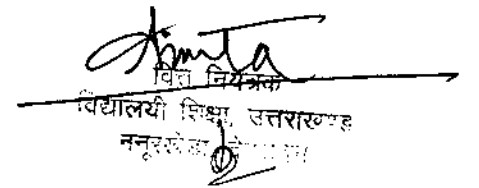 Amita
वित्त नियंत्रक
विद्यालयी शिक्षा, उत्तराखण्ड
ननूरखेडा